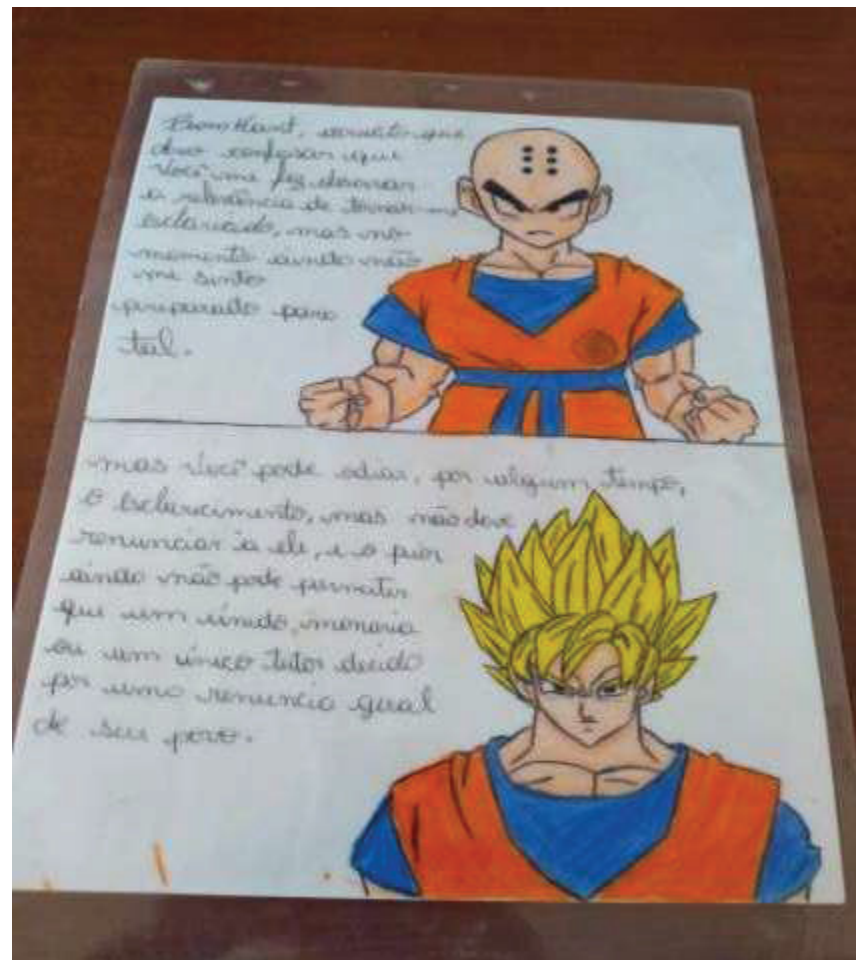 Bom Kant, acredito que
devo confessar que
Você me fez observar
a relevância de tornar-me
esclarecido, mas no
momento ainda não
me sinto
preparado para
tal.
mas você pode adiar, por algum tempo,
o esclarecimento, mas não deve
renunciar à ele, e o pior
ainda não pode permitir
que um unido,
ou um único tutor decido
por uma renuncia geral
de seu povo.